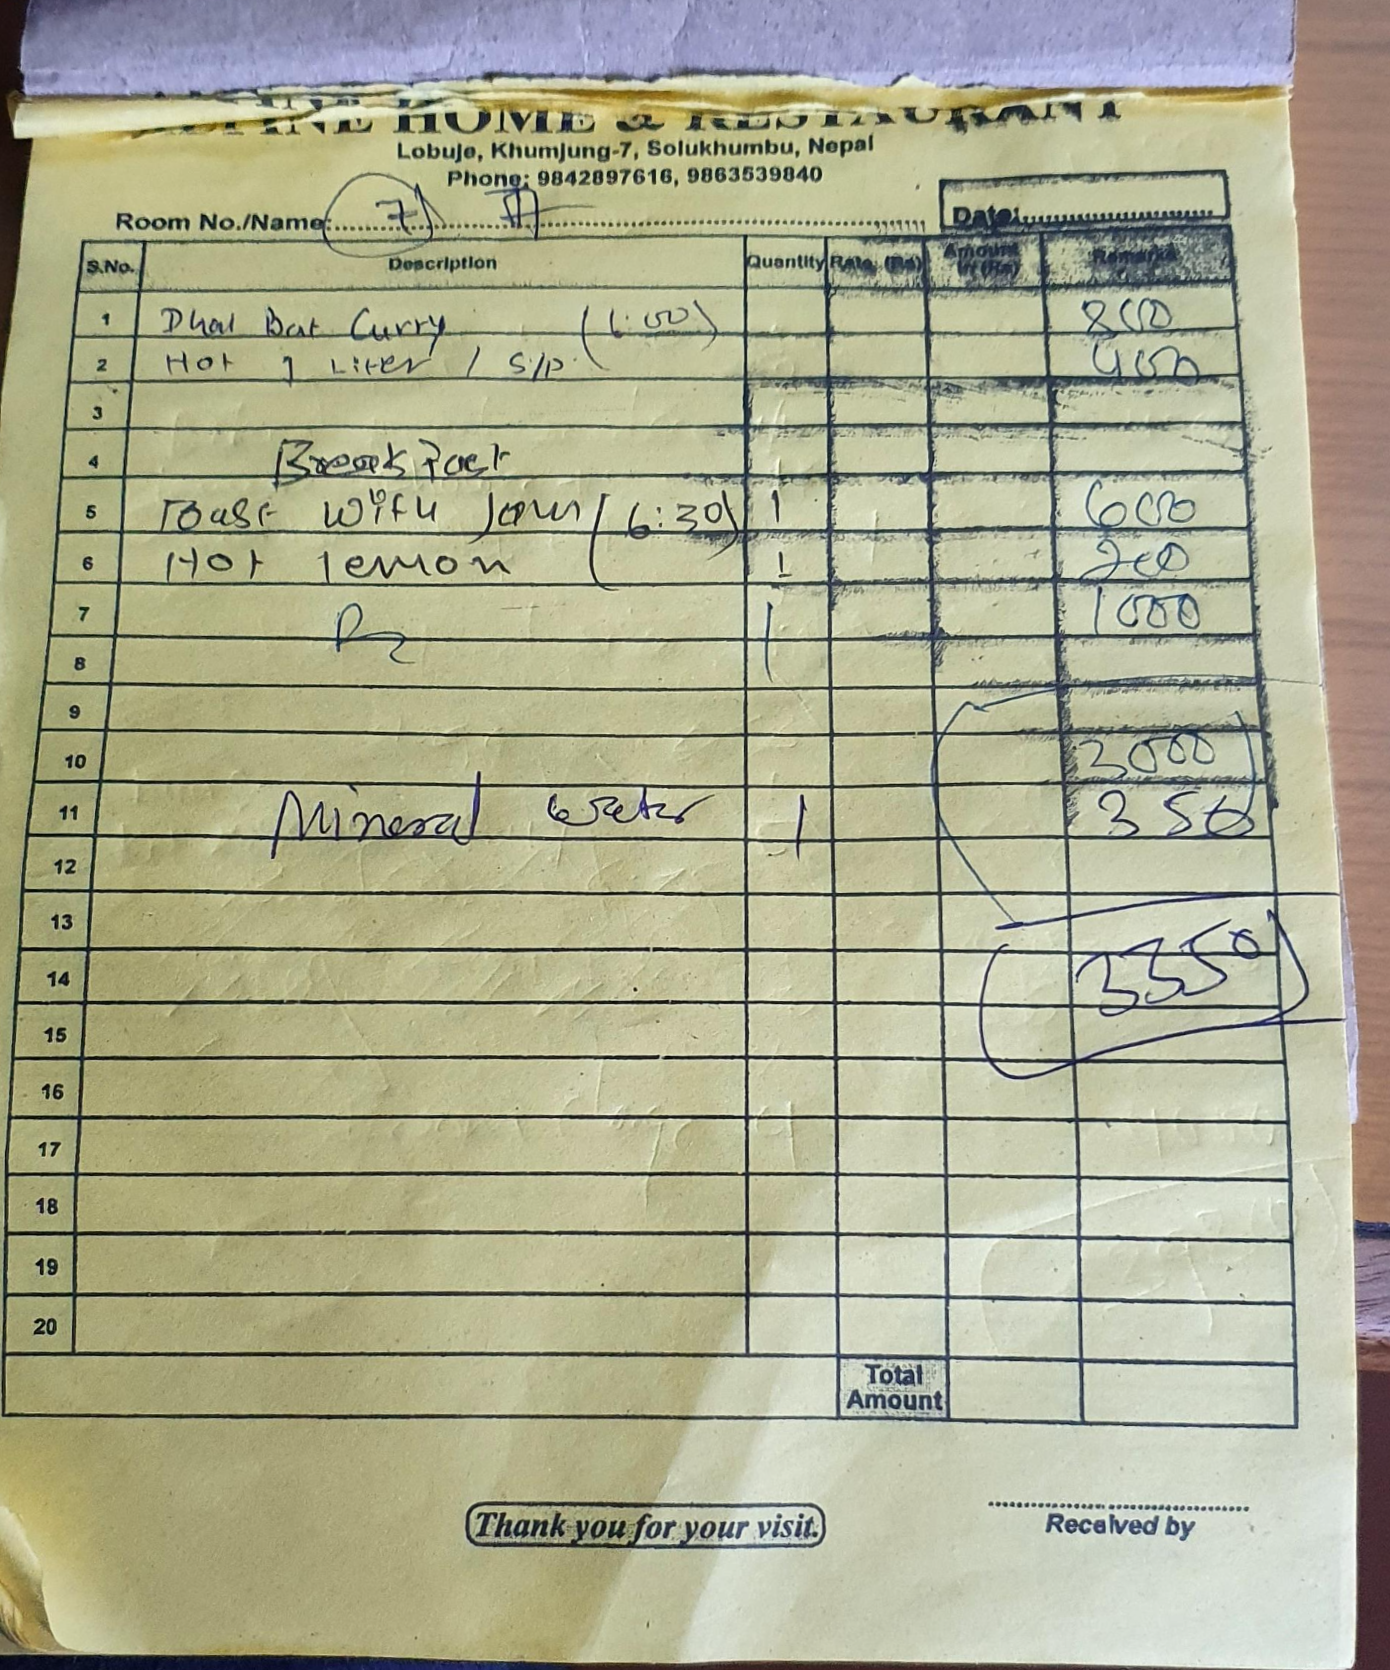 ALPINE HOME & RESTAURANT
Lobuje, Khumjung-7, Solukhumbu, Nepal
Phone: 9842897616, 9863539840
Room No./Name: 7
Date:
S.No. Description Quantity Rate (Rs) Amount in (Rs) Remarks
1 Dhal Bat Curry (6:00) 800
2 Hot 1 Liter / S/P 400
3
4 Breakfast
5 Toast with Jam (6:30) 1 600
6 Hot lemon 1 200
7 1 1000
8
9
10 3000
11 Mineral water 1 350
12
13
14 3350
15
16
17
18
19
20
Total Amount
Thank you for your visit.
Received by